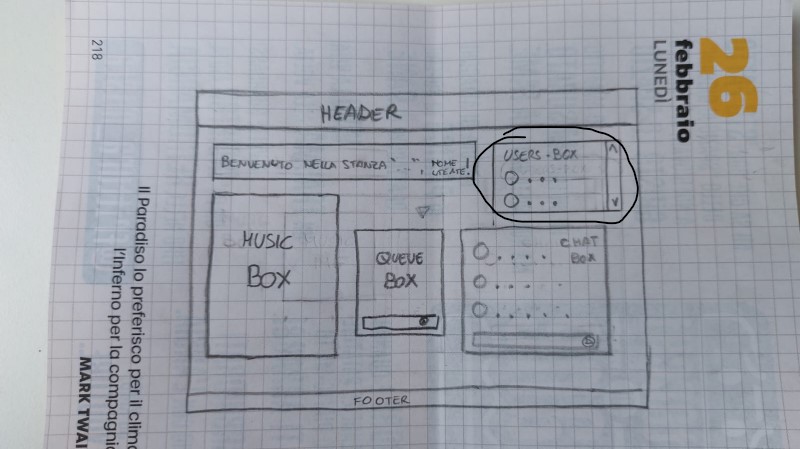 26
febbraio
LUNEDÌ
218
HEADER
BENVENUTO NELLA STANZA "...", NOME UTENTE!
USERS-BOX
MUSIC
BOX
QUEUE
BOX
CHAT
BOX
FOOTER
Il Paradiso lo preferisco per il clima
l'Inferno per la compagnia
MARK TWAI